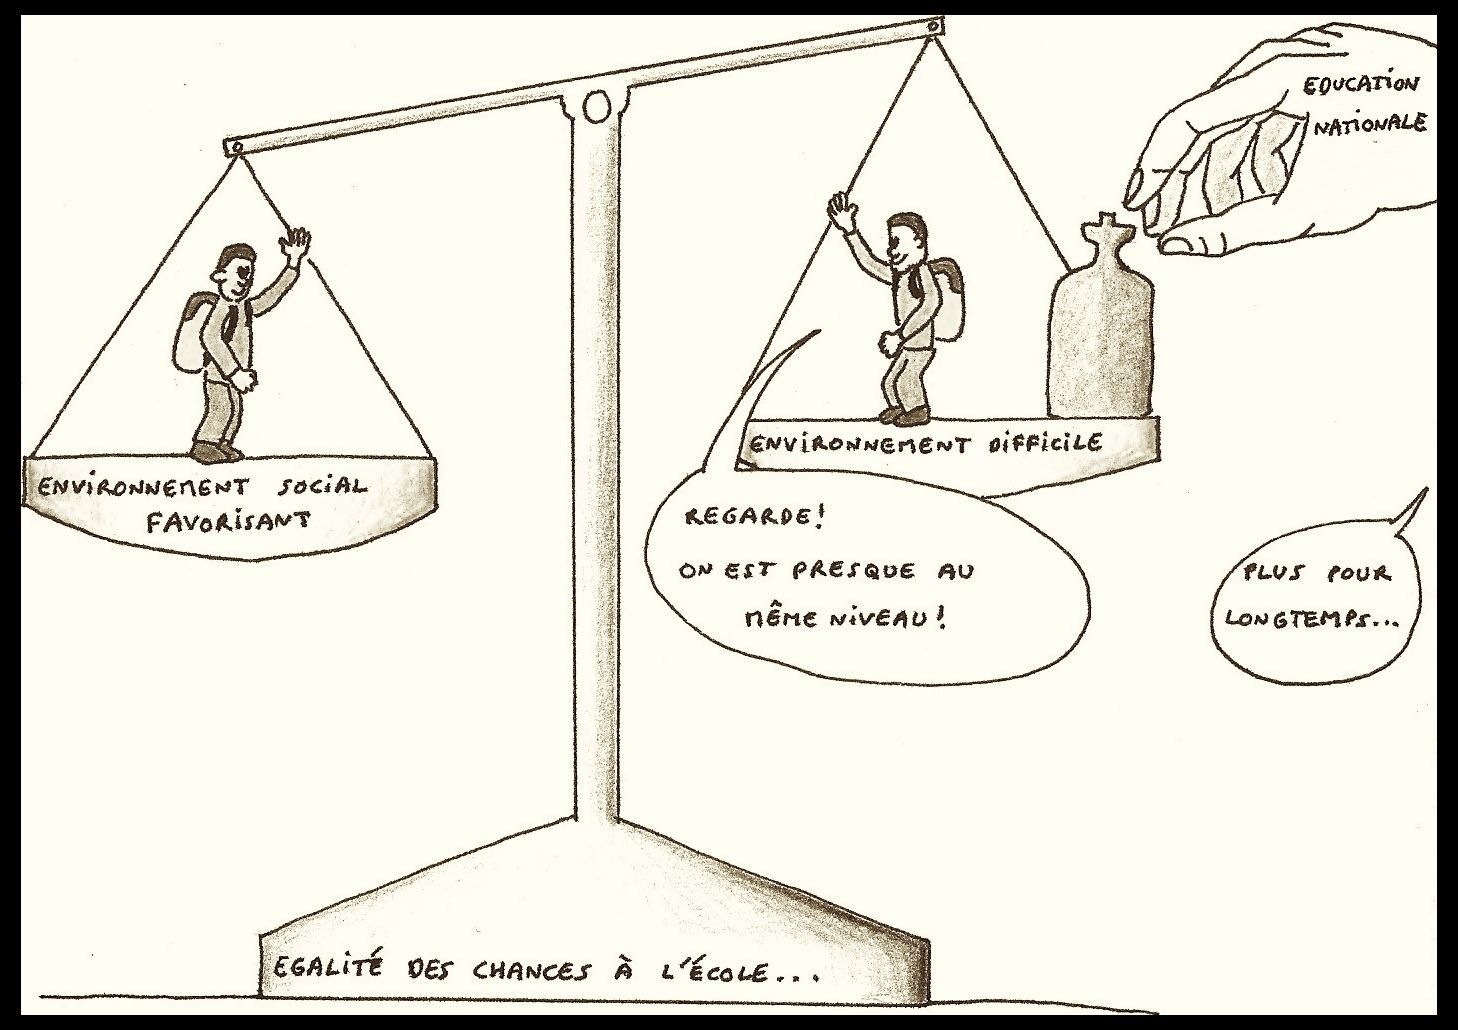 EDUCATION
NATIONALE
ENVIRONNEMENT DIFFICILE
ENVIRONNEMENT SOCIAL
FAVORISANT
REGARDE!
ON EST PRESQUE AU
MÊME NIVEAU!
PLUS POUR
LONGTEMPS...
EGALITÉ DES CHANCES À L'ÉCOLE...